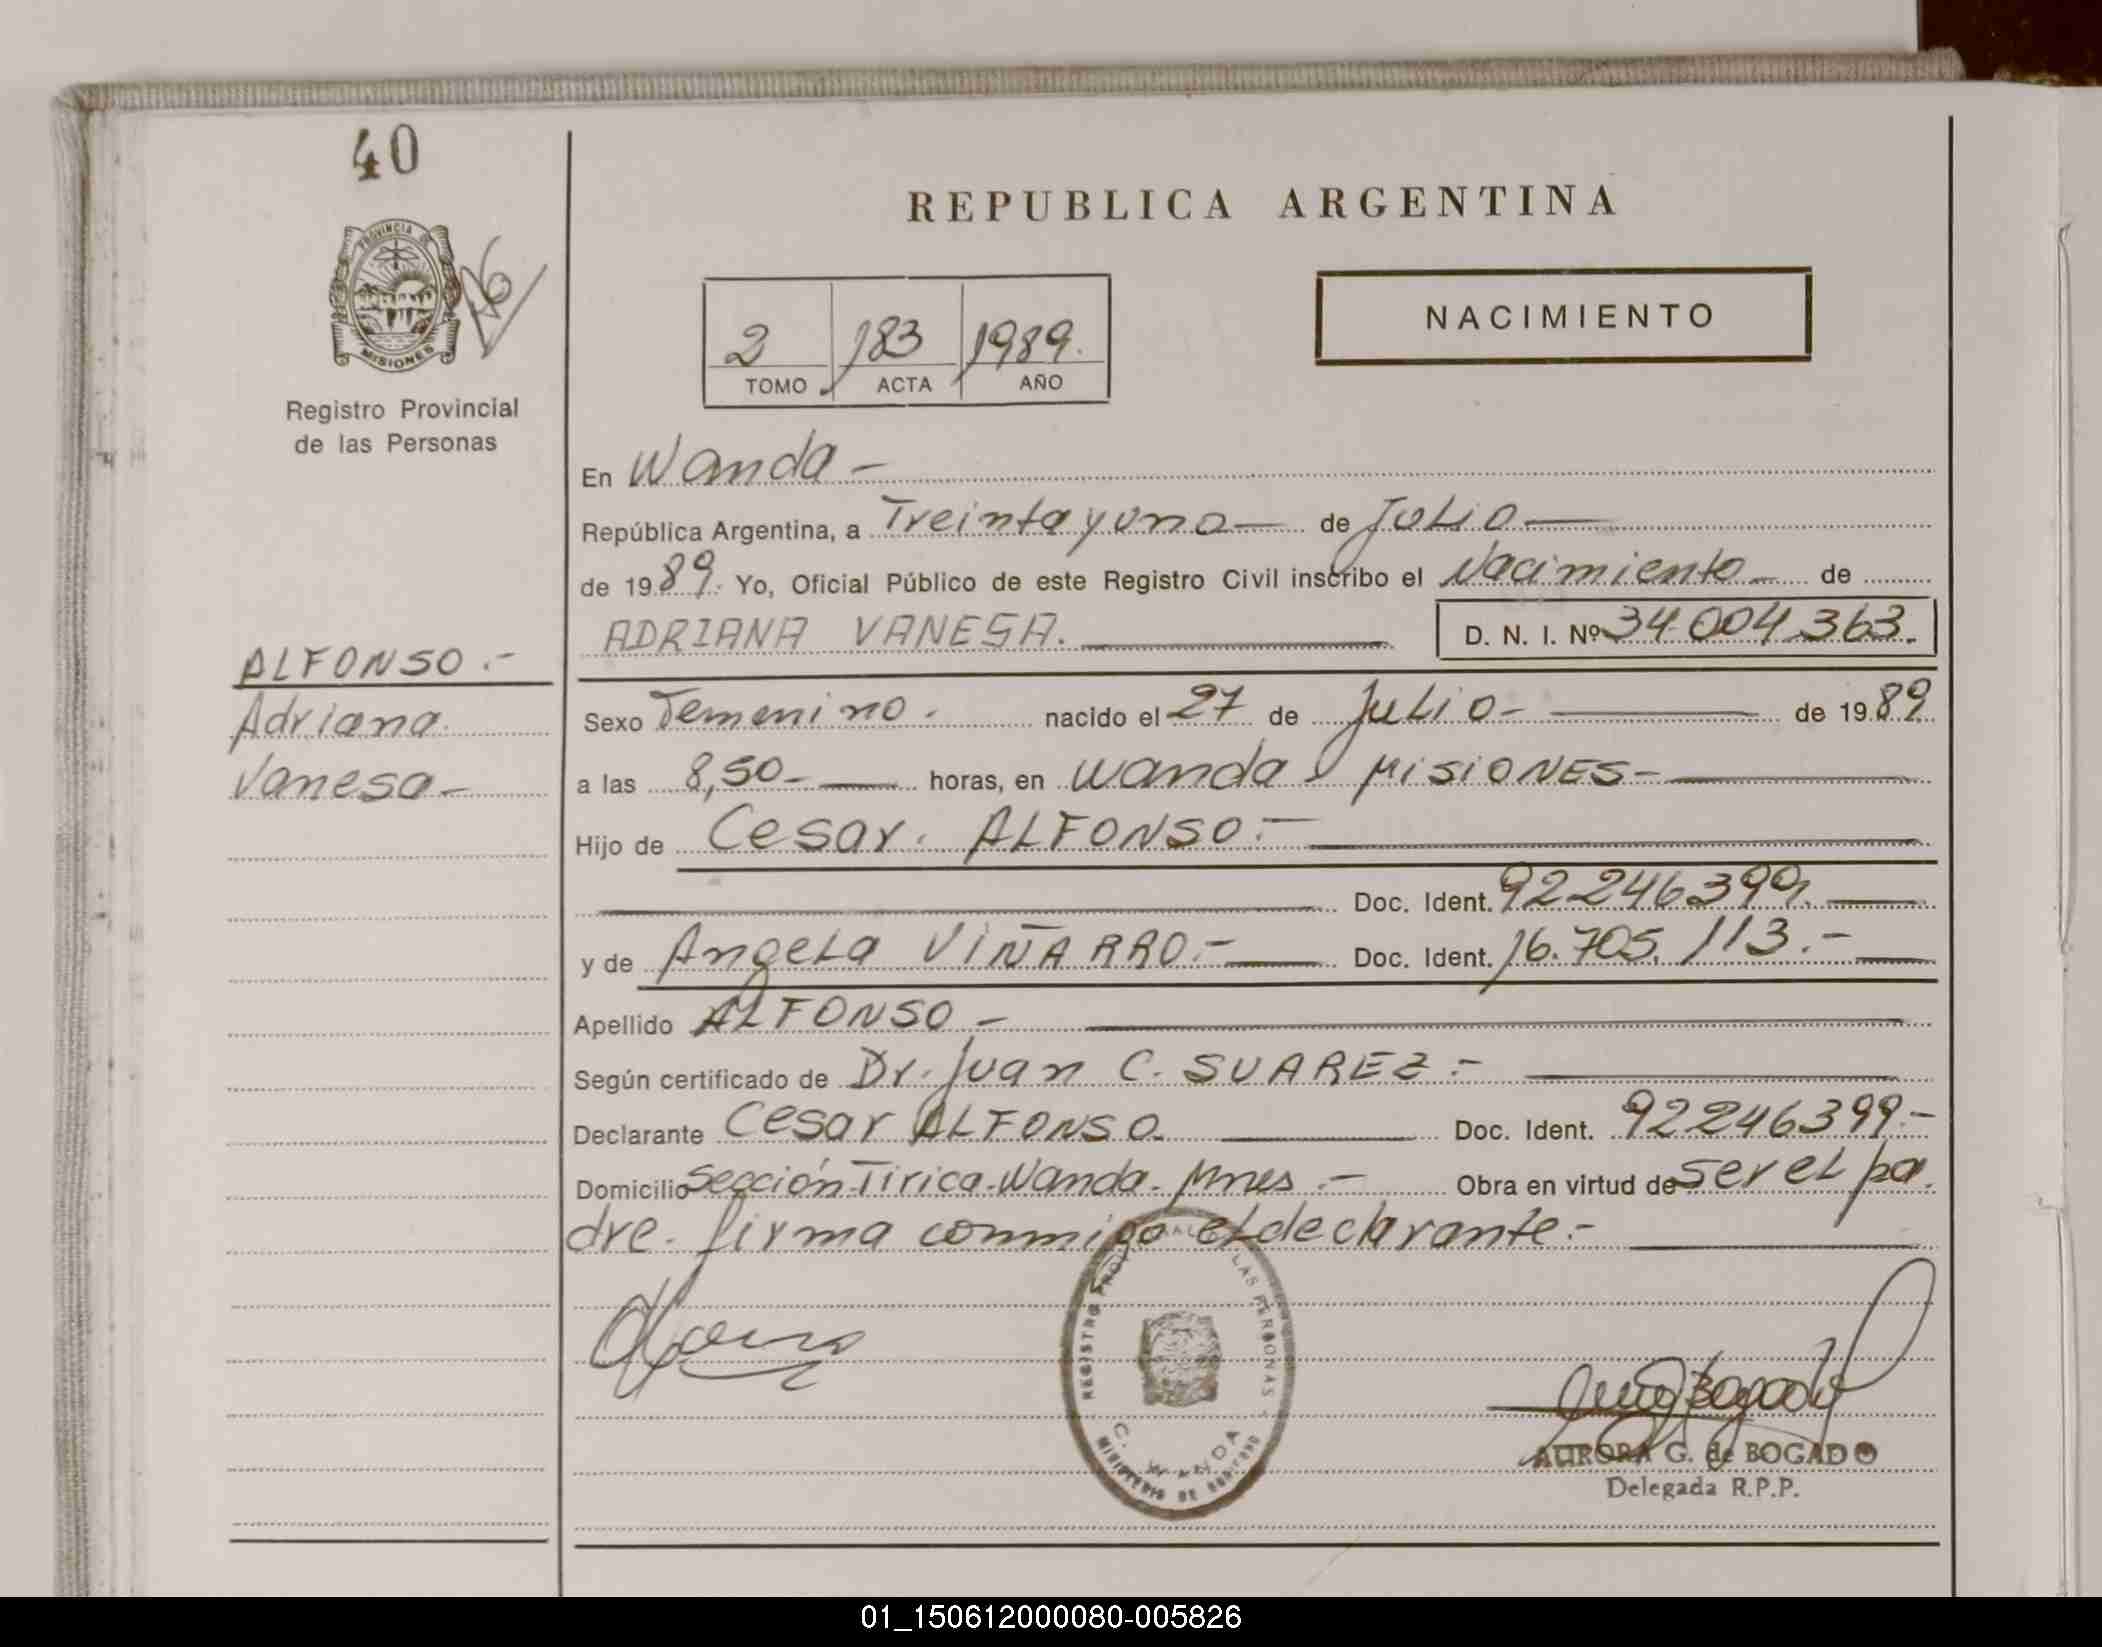 40
PROVINCIA DE
MISIONES
Registro Provincial
de las Personas
REPUBLICA ARGENTINA
2 183 1989.
TOMO ACTA AÑO
NACIMIENTO
En Wanda -
República Argentina, a Treinta y uno — de Julio —
de 1989. Yo, Oficial Público de este Registro Civil inscribo el Nacimiento — de
ADRIANA VANESA. D. N. I. Nº 34.004.363.
ALFONSO.-
Adriana
Vanesa-
Sexo Femenino. nacido el 27 de Julio - de 1989
a las 8,50- horas, en Wanda, MISIONES-
Hijo de Cesar. ALFONSO.-
Doc. Ident. 92246399.
y de Angela VIÑARRO.- Doc. Ident. 16.705.113.-
Apellido ALFONSO -
Según certificado de Dr. Juan C. SUAREZ.-
Declarante Cesar ALFONSO. Doc. Ident. 92246399.-
Domicilio Sección Tirica-Wanda. Mnes.- Obra en virtud de ser el pa-
dre. firma conmigo el declarante.-
REGISTRO PROVINCIAL DE LAS PERSONAS
C. WANDA
MINISTERIO DE GOBIERNO
AURORA G. de BOGADO
Delegada R.P.P.
01_150612000080-005826